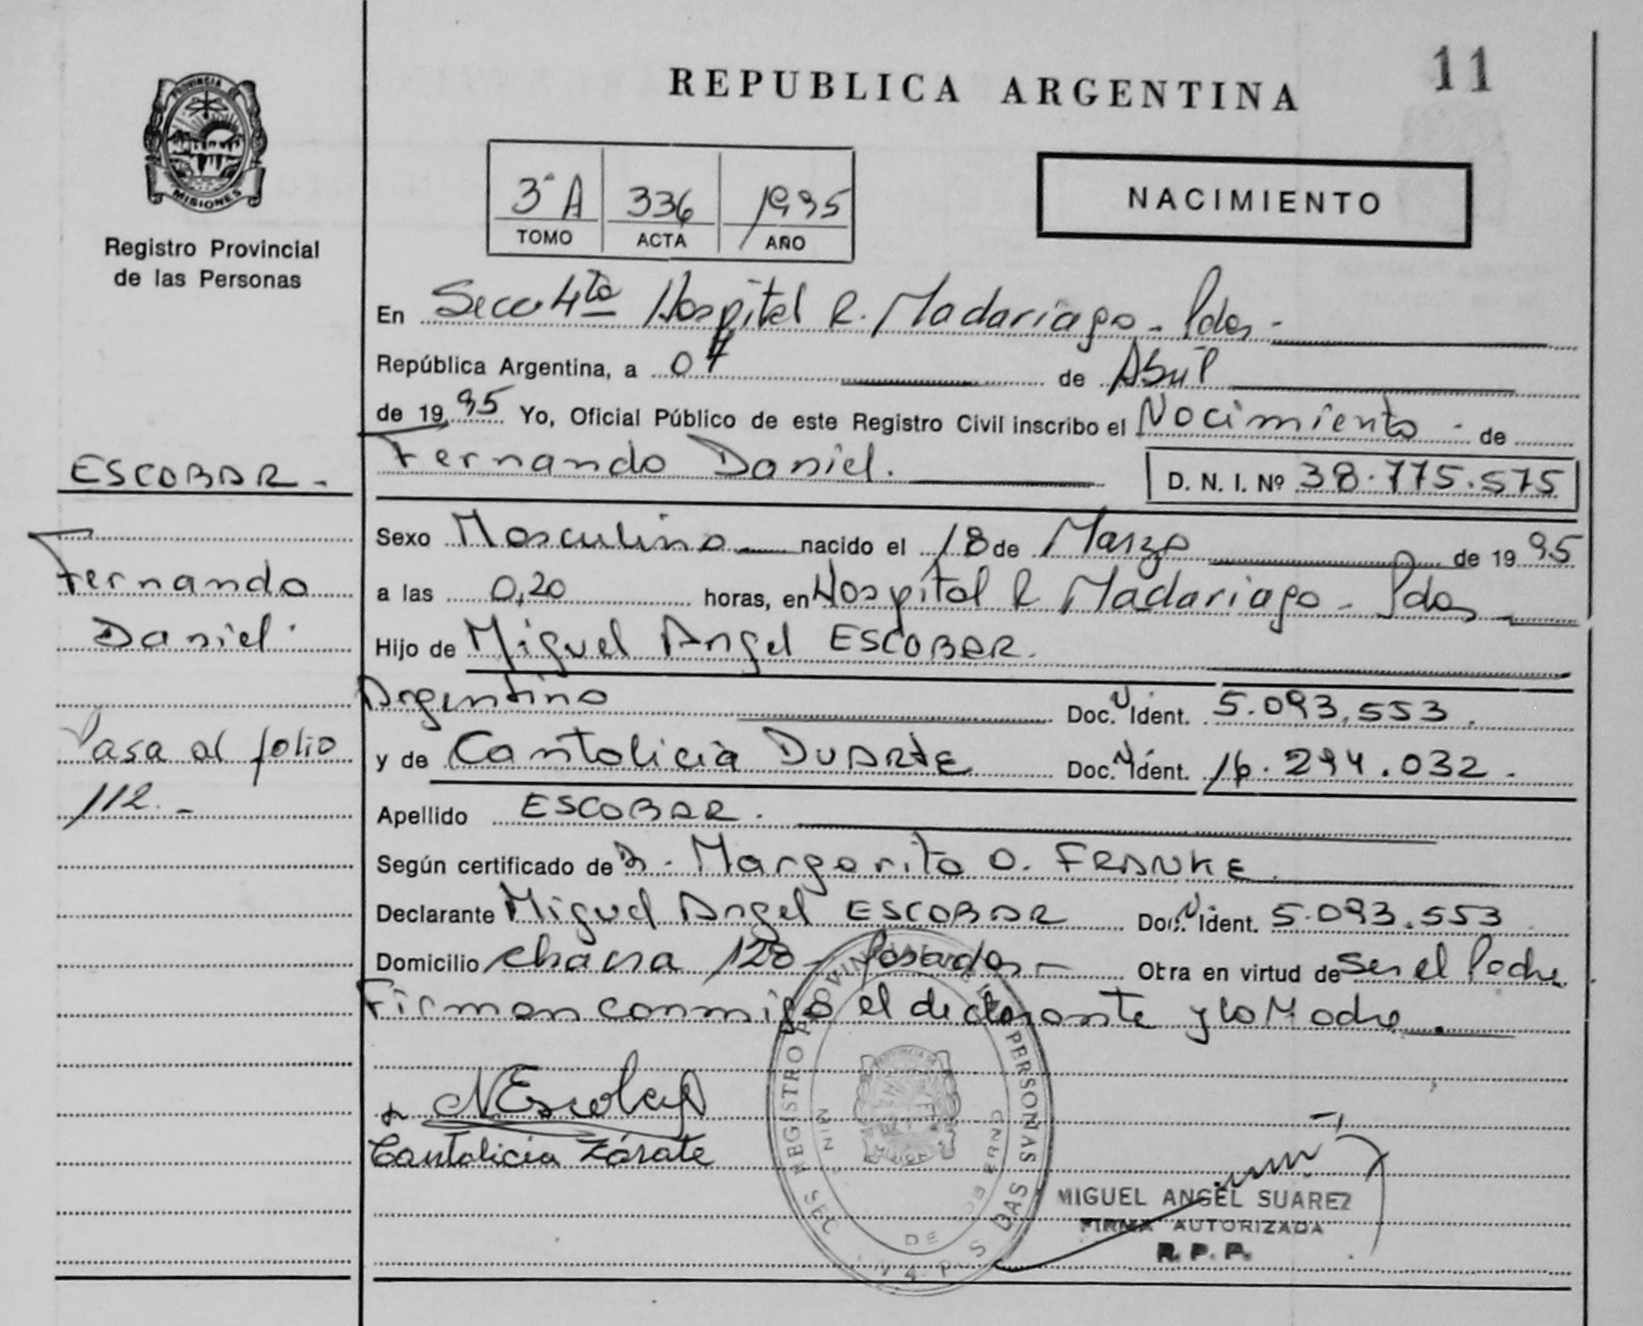 11
REPUBLICA ARGENTINA
PROVINCIA DE
MISIONES
Registro Provincial
de las Personas
3ª A 336 1995
TOMO ACTA AÑO
NACIMIENTO
En Secc 4ta Hospital R. Madariaga - Pdas -
República Argentina, a 07 de Abril
de 1995 Yo, Oficial Público de este Registro Civil inscribo el Nacimiento - de
Fernando Daniel.
D. N. I. Nº 38.775.575
ESCOBAR -
Fernando
Daniel.
Pasa al folio
112. -
Sexo Masculino nacido el 18 de Marzo de 1995
a las 0,20 horas, en Hospital R Madariaga - Pdas
Hijo de Miguel Angel ESCOBAR.
Argentino Doc. N Ident. 5.093.553.
y de Cantalicia DUARTE Doc. N Ident. 16.294.032.
Apellido ESCOBAR.
Según certificado de Margarita O. FRANKE.
Declarante Miguel Angel ESCOBAR Doc. N Ident. 5.093.553
Domicilio chacra 128 - Posadas - Otra en virtud de Ser el Padre
Firman conmigo el declarante y la Madre.
Cantalicia Zárate
REGISTRO PROVINCIAL DE LAS PERSONAS
MIGUEL ANGEL SUAREZ
FIRMA AUTORIZADA
R. P. P.